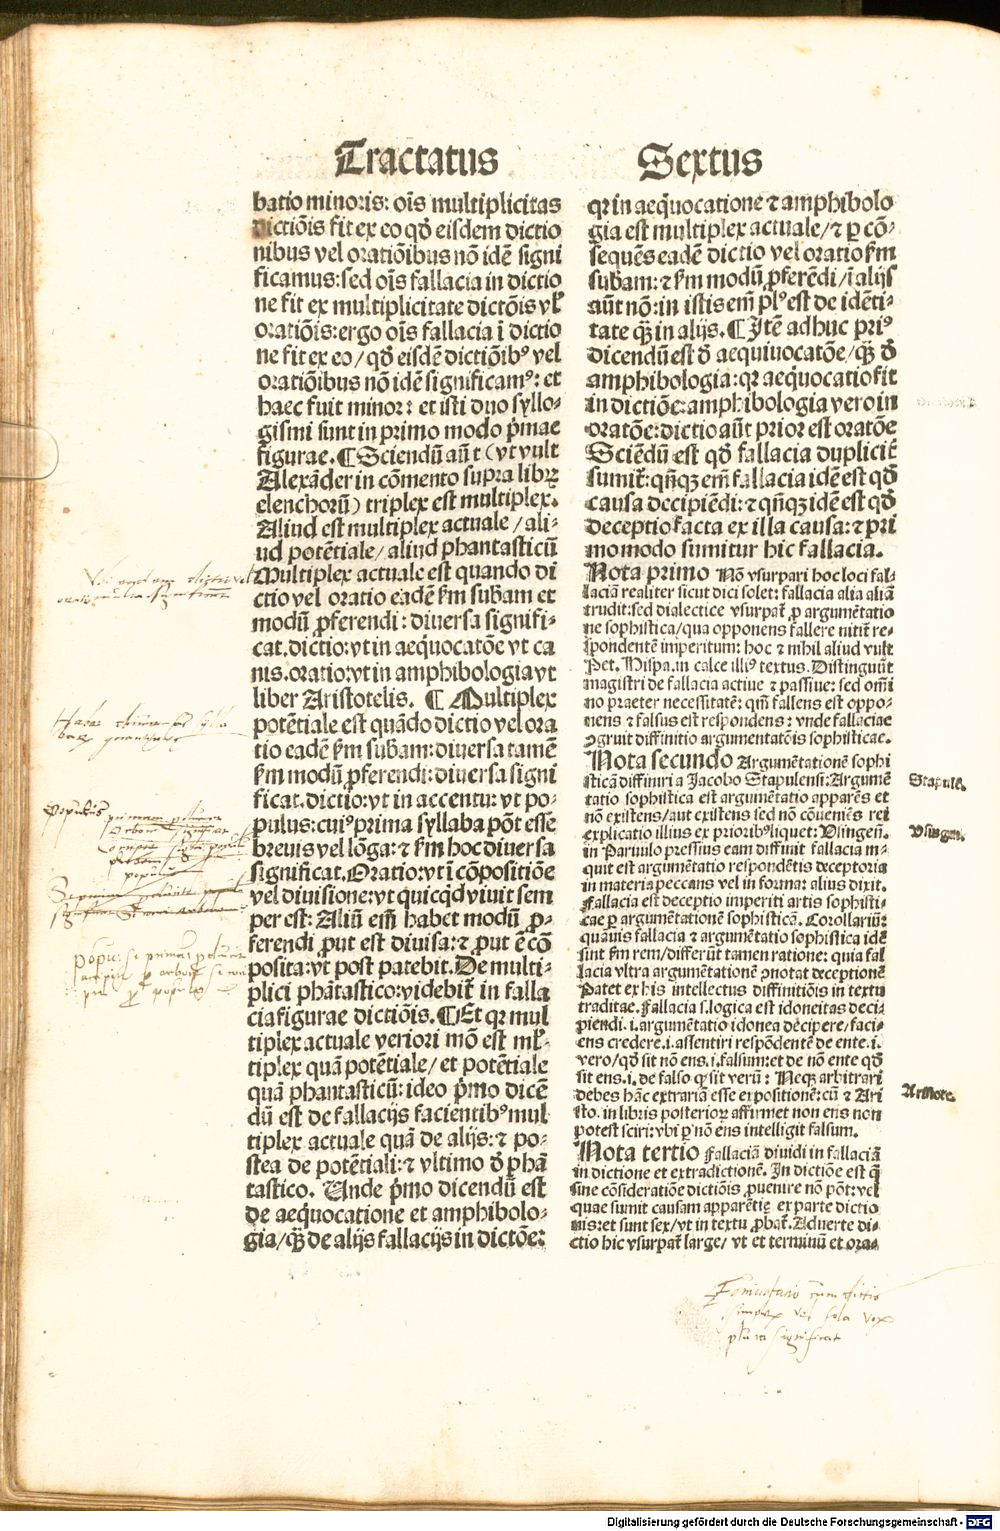 Tractatus Sextus
batio minoris: oīs multiplicitas
dictiōis fit ex eo qđ eisdem dictio
nibus vel oratiōibus nō idē signi
ficamus: sed oīs fallacia in dictio
ne fit ex multiplicitate dictōis vł
oratiōis: ergo oīs fallacia ī dictio
ne fit ex eo/ qđ eisdē dictiōibꝰ vel
oratiōibus nō idē significamꝰ: et
haec fuit minor: et isti duo syllo-
gismi sunt in primo modo p̄mae
figurae. ¶ Sciendū aūt (vt vult
Alexāder in cōmento supra libꝝ
elenchorū) triplex est multiplex.
Aliud est multiplex actuale/ ali-
ud potētiale/ aliud phantasticū
Multiplex actuale est quando di
ctio vel oratio eadē ẜm subam et
modū ꝓferendi: diuersa signifi-
cat. dictio: vt in aeq̄uocatōe vt ca
nis. oratio: vt in amphibologia vt
liber Aristotelis. ¶ Multiplex
potētiale est quādo dictio vel ora
tio eadē ẜm subam: diuersa tamē
ẜm modū ꝓferendi: diuersa signi
ficat. dictio: vt in accentu: vt po-
pulus: cuiꝰ prima syllaba pōt esse
breuis vel lōga: ⁊ ẜm hoc diuersa
significat. Oratio: vt ī cōpositiōe
vel diuisione: vt quicqd viuit sem
per est: Aliū em̄ habet modū ꝓ-
ferendi ꝓut est diuisa: ⁊ ꝓut ē cō
posita: vt post patebit. De multi-
plici phātastico: videbit̄ in falla
cia figurae dictiōis. ¶ Et qꝛ mul
tiplex actuale veriori mō est mł-
tiplex quā potētiale/ et potētiale
quā phantasticū: ideo p̄mo dicē
dū est de fallacijs facientibꝰ mul
tiplex actuale quā de alijs: ⁊ po-
stea de potētiali: ⁊ vltimo đ phā
tastico. Unde p̄mo dicendū est
de aeq̄uocatione et amphibolo-
gia/ q̄ꝫ de alijs fallacijs in dictōe:
qꝛ in aeq̄uocatione ⁊ amphibolo
gia est multiplex actuale/ ⁊ ꝑ cō-
sequēs eadē dictio vel oratio ẜm
subam: ⁊ ẜm modū ꝓferēdi/ ī alijs
aūt nō: in istis em̄ plꝰ est de idēti-
tate q̄ꝫ in alijs. ¶ Itē adhuc priꝰ
dicendū est đ aequiuocatōe/ q̄ꝫ đ
amphibologia: qꝛ aeq̄uocatio fit
in dictiōe: amphibologia vero in
oratōe: dictio aūt prior est oratōe
Sciēdū est qđ fallacia dupliciť
sumit̄: qn̄qꝫ em̄ fallacia idē est qđ
causa decipiēdi: ⁊ qn̄qꝫ idē est qđ
deceptio facta ex illa causa: ⁊ pri
mo modo sumitur hic fallacia.
Nota primo Nō vsurpari hoc loci fal-
laciā realiter sicut dici solet: fallacia alia aliā
trudit: sed dialectice vsurpat̄ ꝓ argumētatio
ne sophistica/ qua opponens fallere nitit̄ re-
spondentē imperitum: hoc ⁊ nihil aliud vult
Pet. Hispa. in calce illiꝰ textus. Distinguūt
magistri de fallacia actiue ⁊ passiue: sed om̄i
no praeter necessitatē: qm̄ fallens est oppo-
nens ⁊ falsus est respondens: vnde fallaciae
ꝯgruit diffinitio argumentatōis sophisticae.
Nota secundo Argumētationē sophi
sticā diffiniri a Jacobo Stapulensi: Argumē
tatio sophistica est argumētatio apparēs et
nō existens/ aut existens sed nō cōueniēs rei
explicatio illius ex prioribꝰ liquet: Vsingeñ.
in Paruulo pressius eam diffinit fallacia in-
quit est argumētatio respondētis deceptoria
in materia peccans vel in forma: alius dixit.
Fallacia est deceptio imperiti artis sophisti-
cae ꝑ argumētationē sophisticā. Corollariū:
quāuis fallacia ⁊ argumētatio sophistica idē
sint ẜm rem/ differūt tamen ratione: quia fal
lacia vltra argumētationē ꝯnotat deceptionē
Patet ex his intellectus diffinitiōis in textu
traditae. Fallacia s. logica est idoneitas deci
piendi. i. argumētatio idonea decipere/ faci-
ens credere .i. assentiri respōdentē de ente .i.
vero/ qđ sit nō ens .i. falsum: et de nō ente qđ
sit ens .i. de falso ꝙ sit verū: Neqꝫ arbitrari
debes hāc extrariā esse expositionē: cū ⁊ Ari
sto. in libris posterioꝝ affirmet non ens non
potest sciri: vbi ꝑ nō ens intelligit falsum.
Nota tertio Fallaciā diuidi in fallaciā
in dictione et extradictionē. In dictiōe est q̄
sine cōsideratiōe dictiōis ꝓuenire nō pōt: vel
quae sumit causam apparētie ex parte dictio
nis: et sunt sex/ vt in textu ꝓbat̄. Aduerte di-
ctio hic vsurpat̄ large/ vt et terminū et ora-
Stapule.
Vsingen.
Aristote.
vel sola vox
significat
Digitalisierung gefördert durch die Deutsche Forschungsgemeinschaft - DFG